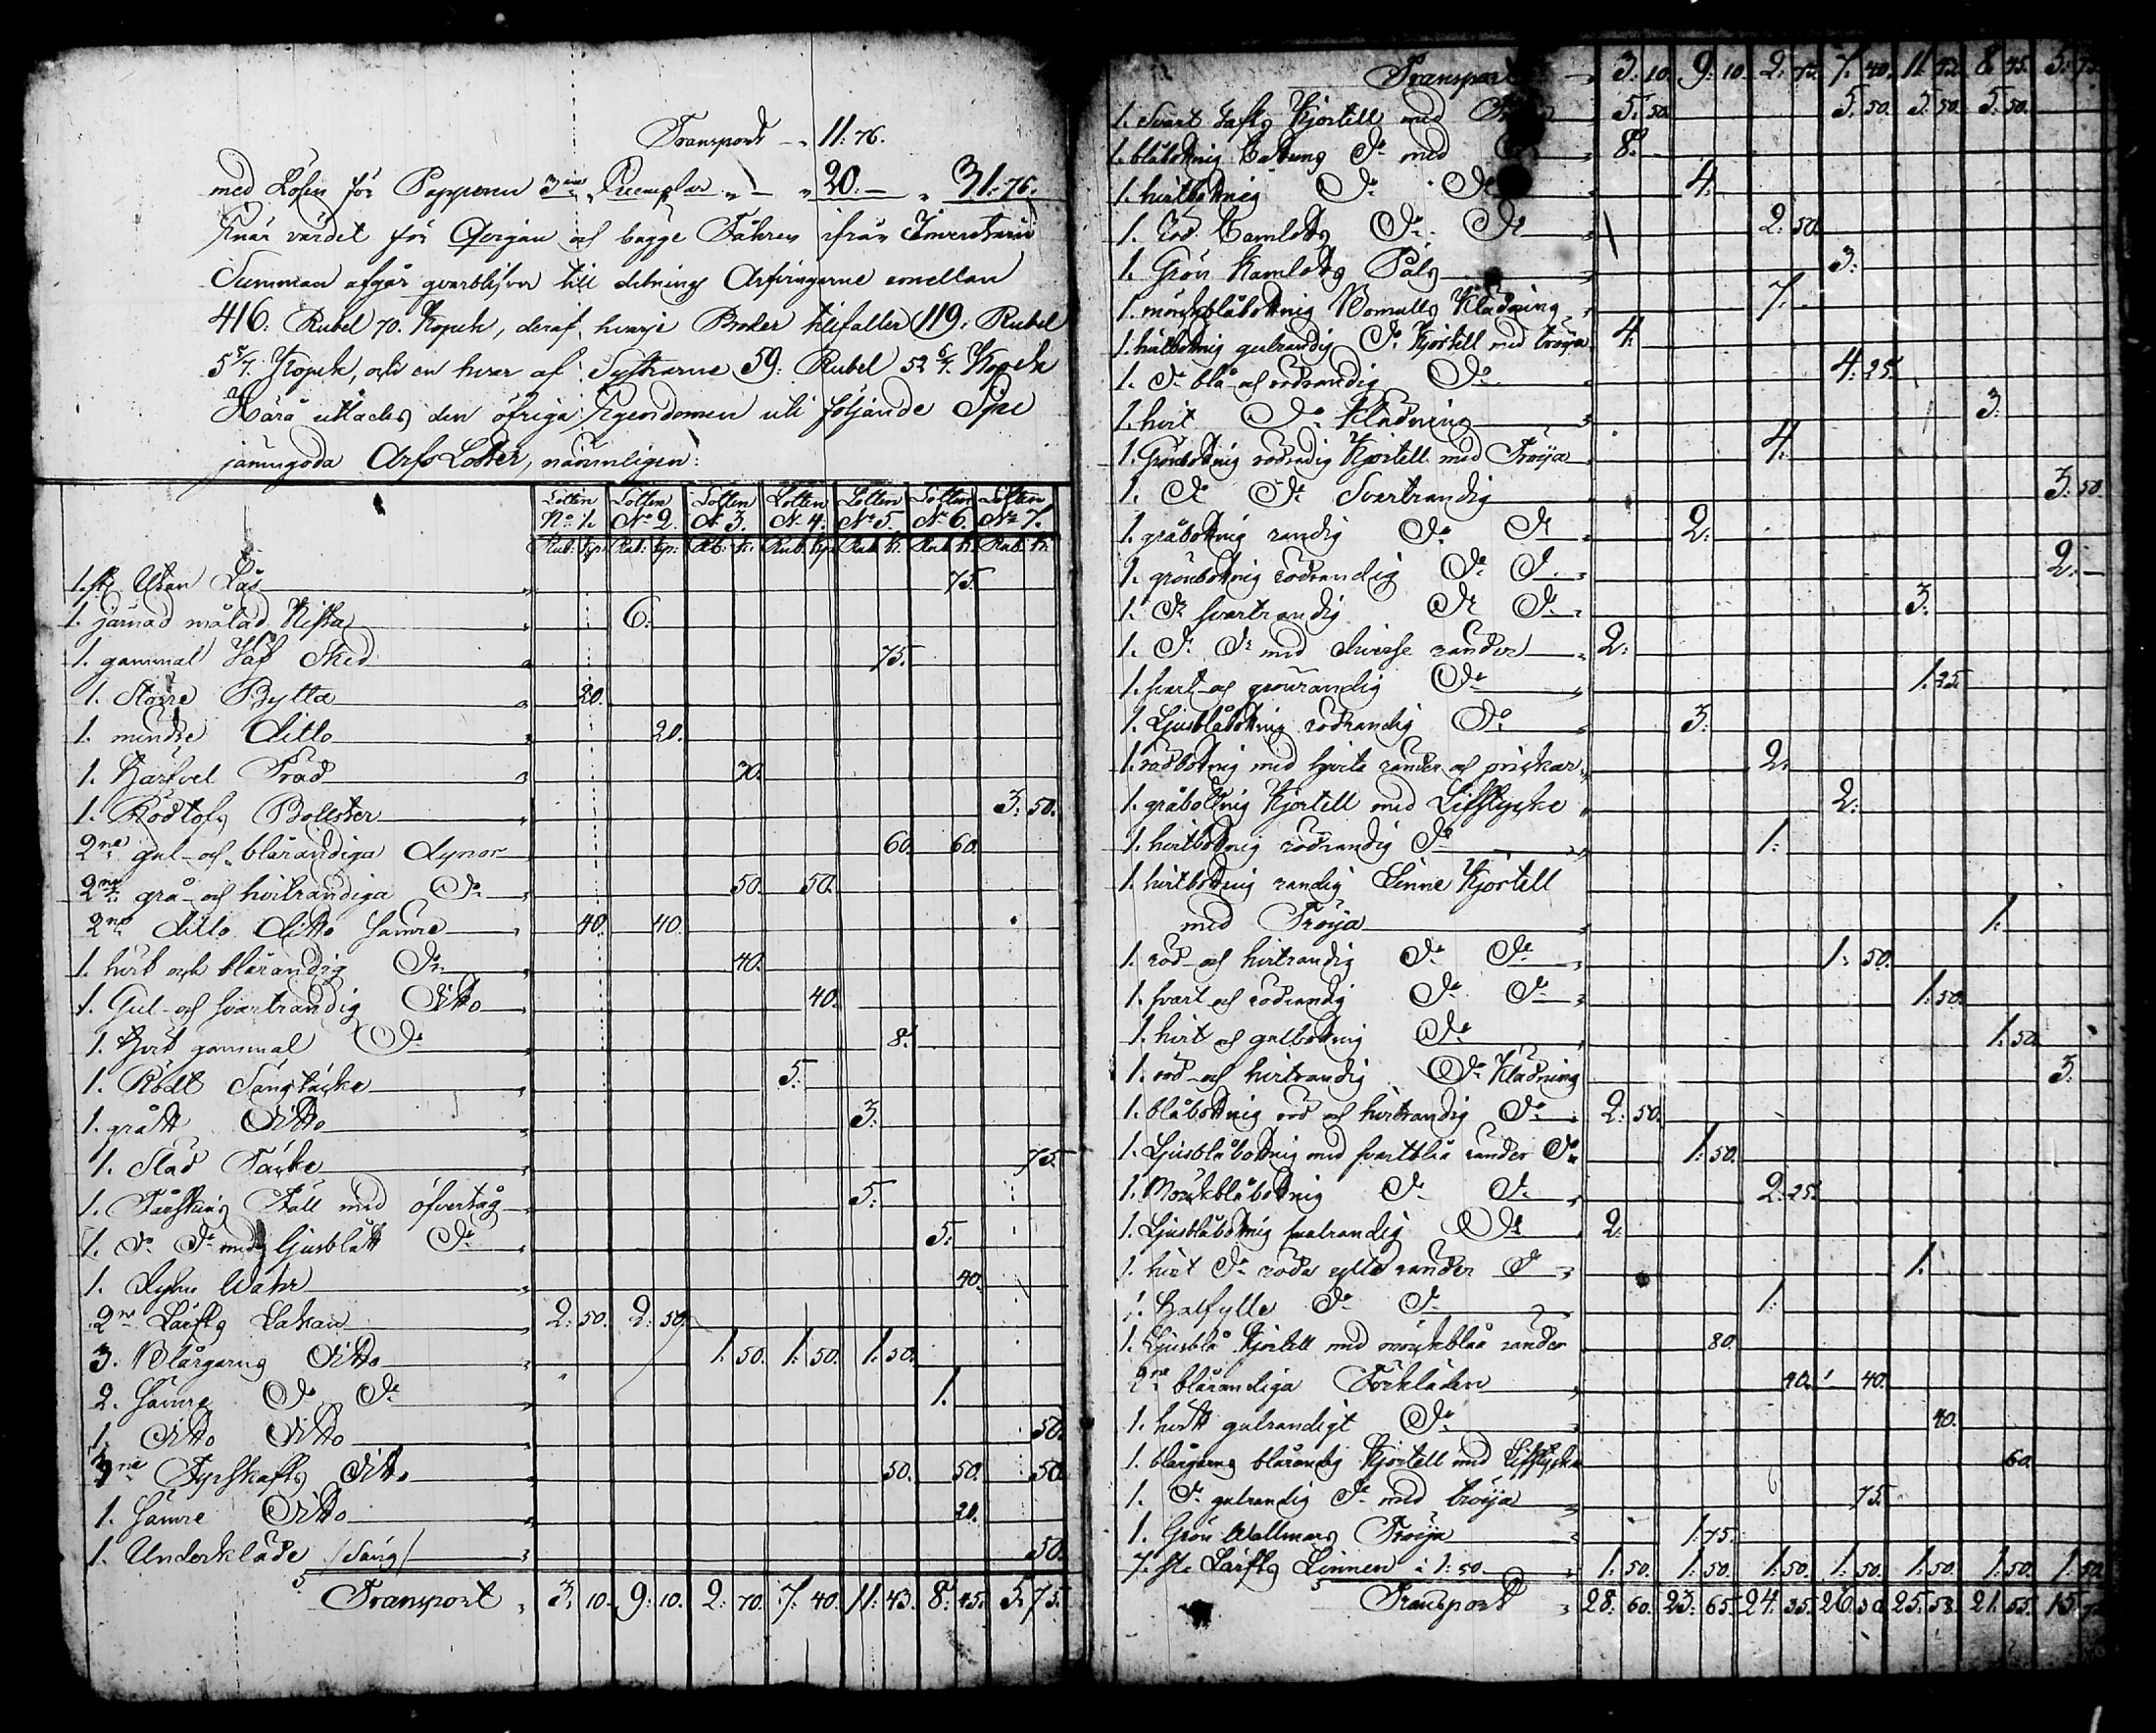 Transport — 11: 76.
med Lösen för Papperen 3ne Exemplar " — " 20: — " 31: 76.
hvar värdet för Qvigan och bägge Fåhren ifrån Inventarii
Summan afgår qvarblifver till delning Arfvingarne emellan
416: Rubel 70. Kopek, deraf hvarje Broder tillfaller 119: Rubel
5 5/7. Kopek, och en hvar af Systrarne 59: Rubel 52 6/7. Kopek
utlades den öfriga Egendomen uti följande Sju
jämngoda Arfs Lotter, nämnligen:
Lotten No. 1. Lotten No 2. Lotten N. 3. Lotten N. 4. Lotten No 5. Lotten No 6. Lotten No 7.
Rub: kp: Rub: kp: Rb: k: Rub: kp Rub. k. Rub. k. Rub. k.
1. st. Utan Lås 75.
1. järnad målad Kista 6.
1. gammal Väf Sked 75.
1. Större Bytta 20.
1. mindre Ditto 20.
1. Härfvel Träd 30.
1. Rödtofs Bollster 3: 50.
2ne gul- och blårandiga Dynor 60. 60.
2ne grå- och hvitrandiga Do 50. 50.
2ne ditto ditto sämre 40. 40.
1. hvit och blårandig Do 40.
1. Gul- och svartrandig Ditto 40.
1. Hvit gammal Do 8.
1. Rödt Sängtäcke 5.
1. grått Ditto 3:
1. Släd Täcke 75.
1. Fårskins Fäll med öfvertåg 5:
1. Do Do med ljusblått Do 5:
1. Dyno Wahr 40.
2ne Lärfts Lakan 2: 50. 2: 50.
3. Blårgarns Ditto 1. 50. 1: 50. 1: 50.
2. Sämre Do Do 1.
1. Ditto Ditto 50.
3ne Fyrskafts Ditto 50. 50. 50
1. Sämre Ditto 20.
1. Underkläde /Säng/ 50.
Transport 3: 10. 9: 10. 2: 70. 7: 40. 11: 43. 8: 45. 5: 75.
Transport 3: 10. 9: 10. 2: 7. 40. 11. 8. 45. 5:
1. Svart Tafts Kjortell med 5: 50. 5. 50. 5: 50. 5: 50.
1. blåbottnig Cattuns Do med 8.
1. hvitbottnig Do Do 4:
1. Röd Camlotts Do Do 2: 50.
1. Grön Kamlotts Päls 3:
1. mörkblåbottnig Bomulls Klädning 7.
1. hvitbottnig gulrandig Do Kjortell med tröija 4.
1. Do blå- och rödrandig Do 4: 25.
1. hvit Do Klädning 3:
1. Grönbottnig rödrandig Kjortell med Tröija 4.
1. Do Do Svartrandig 3: 50.
1. gråbottnig randig Do Do 2:
1. grönbottnig rödrandig Do Do 2: —
1. Do svartrandig Do Do 3.
1. Do Do med diverse ränder 2:
1. svart- och grönrandig Do 1. 25.
1. Ljusblåbottnig rödrandig Do 3:
1. rödbottnig med hvita ränder och prickar 2.
1. gråbottnig Kjortell med Lifstycke 2:
1. hvitbottnig rödrandig Do 1:
1. hvitbottnig randig Linne Kjortell
med Tröija 1.
1. röd- och hvitrandig Do Do 1: 50.
1. svart och rödrandig Do Do 1: 50.
1. hvit och gulbottnig Do 1. 50.
1. röd- och hvitrandig Do Klädning 3.
1. blåbottnig röd och hvitrandig Do 2: 50.
1. Ljusblåbottnig med svartblåa ränder Do 1: 50.
1. Mörkblåbottnig Do Do 2: 25.
1. Ljusblåbottnig smalrandig Do 2:
1. hvit Do röda ränder Do 1.
1. Halfylle Do Do 1:
1. Ljusblå Kjortell med mörkblåa ränder 80.
2ne blårandiga Förkläden 40. 40.
1. hvitt gulrandigt Do 40.
1. blårgarns blårandig Kjortell med Lifstycke 60.
1. Do gulrandig Do med tröija 75.
1. Grön Wallmars Tröija 1: 75.
7. st. Lärfts Linnen à 1: 50. 1: 50. 1: 50. 1: 50. 1: 50. 1: 50. 1: 50. 1: 50
Transport 28: 60. 23: 65. 24: 35. 26: 30 25: 58. 21: 55. 15: